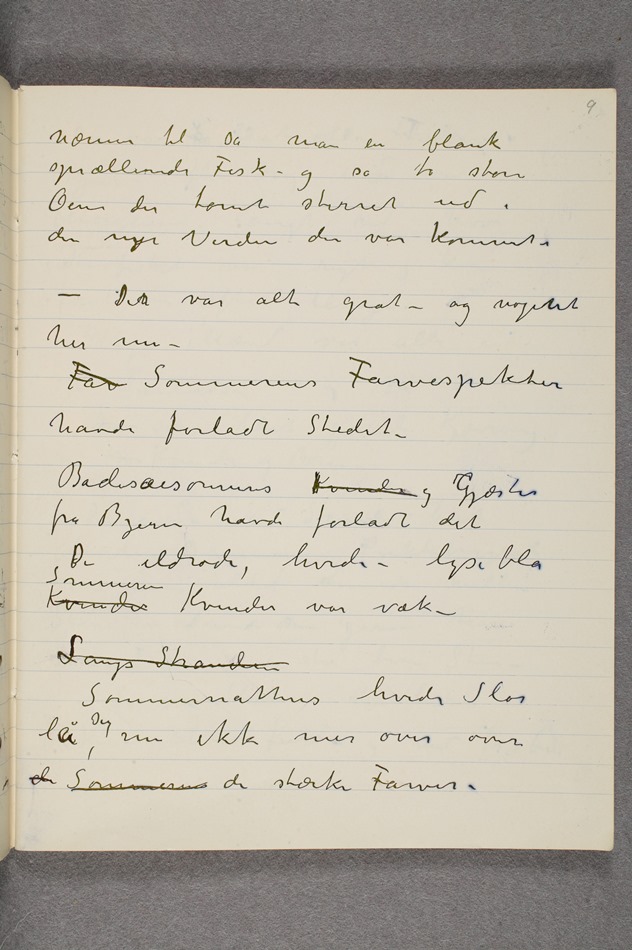 9
nærmer til så man en blank
sprællende Fisk – og så to store
Øine der tomt stirret ud i
den nye Verden der var kommet.
– Det var alt gråt – og vogent
her nu –
Far Sommerens Farvespekter
havde forladt Stedet –
Badesæsonnens Kvinder og Gjæster
fra Byerne havde forladt det
De ildrøde, hvide – lyse blå
Sommeren
Kvinder Kvinder var væk –
Langs Stranden
Sommernattens hvide Slør
lå Sig nu ikke mer over over
de Sommerens de stærke Farver.